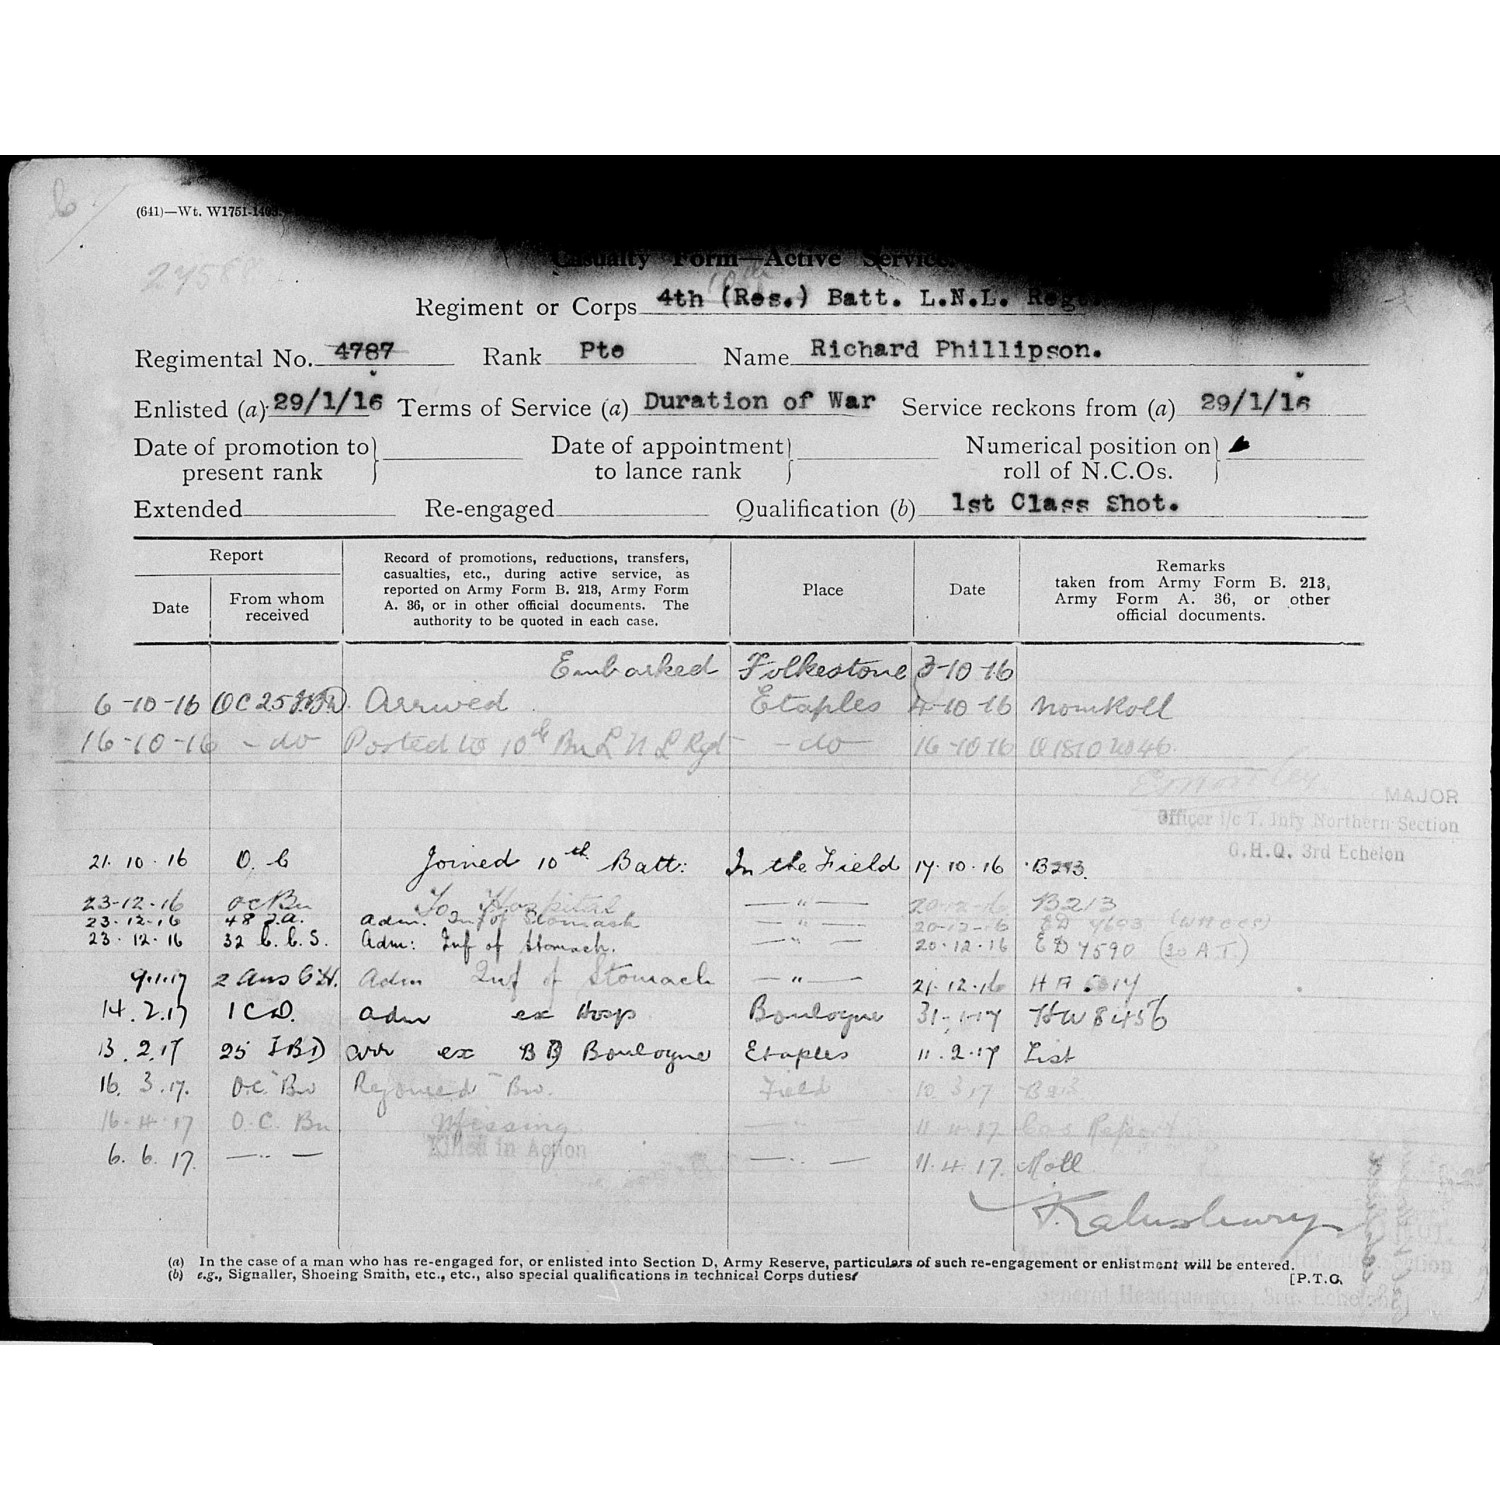 (641)—Wt. W1751-1403.
27588
Casualty Form—Active Service.
10th
Regiment or Corps 4th (Res.) Batt. L.N.L. Regt.
Regimental No. 4787 Rank Pte Name Richard Phillipson.
Enlisted (a) 29/1/16 Terms of Service (a) Duration of War Service reckons from (a) 29/1/16
Date of promotion to present rank Date of appointment to lance rank Numerical position on roll of N.C.Os.
Extended Re-engaged Qualification (b) 1st Class Shot.
Report
Date
From whom received
Record of promotions, reductions, transfers,
casualties, etc., during active service, as
reported on Army Form B. 213, Army Form
A. 36, or in other official documents. The
authority to be quoted in each case.
Place
Date
Remarks
taken from Army Form B. 213,
Army Form A. 36, or other
official documents.
Embarked Folkestone 3-10-16
6-10-16 OC 25 IBD Arrived Etaples 4-10-16 Nom Roll
16-10-16 -do- Posted to 10th Bn L N L Rgt -do- 16-10-16
MAJOR
Officer i/c T. Infy Northern Section
G.H.Q. 3rd Echelon
21.10.16 O.C Joined 10th Batt: In the Field 17.10.16 B213.
23-12-16 OC Bn To Hospital —"— 20-12-16 B213
23-12-16 48 F.A. adm. Inf of Stomach —"— 20-12-16 ED 7693
23.12.16 32 C.C.S. Adm: Inf of Stomach. —"— 20.12.16 ED 7590 (30 A.T.)
9.1.17 2 Aus G.H. Adm Inf of Stomach —"— 21.12.16 HA
14.2.17 1 C.D. adm ex Hosp Boulogne 31-1-17 HW 8456
13.2.17 25 IBD arr ex BD Boulogne Etaples 11.2.17 List
16.3.17. O.C. Bn Rejoined Bn. Field 10 3 17 B213
16-4-17 O.C. Bn Missing —"— 11.4.17. Cas Report
Killed in Action
6.6.17. —"— —"— 11.4.17. Roll
(a) In the case of a man who has re-engaged for, or enlisted into Section D, Army Reserve, particulars of such re-engagement or enlistment will be entered.
(b) e.g., Signaller, Shoeing Smith, etc., etc., also special qualifications in technical Corps duties.
[P.T.O.
General Headquarters, 3rd. Echelon